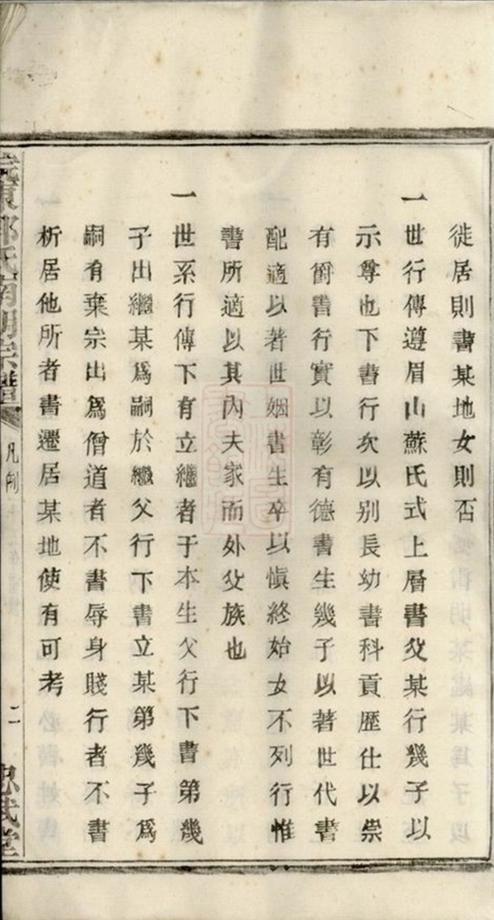 徙居則書某地女則否
一世行傳遵眉山蘇氏式上層書父某行幾子以
示尊也下書行次以别長幼書科貢歷仕以崇
有爵書行實以彰有德書生幾子以著世代書
配適以著世姻書生卒以慎終始女不列行惟
書所適以其內夫家而外父族也
一世系行傳下有立繼者于本生父行下書第幾
子出繼某爲嗣於繼父行下書立某第幾子爲
嗣有棄宗出爲僧道者不書辱身賤行者不書
析居他所者書遷居某地使有可考
凡例
二
忠武堂